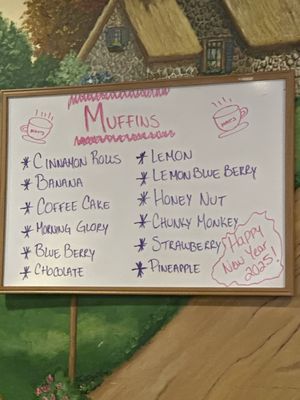 Muffins
* Cinnamon Rolls
* Banana
* Coffee Cake
* Morning Glory
* Blue Berry
* Chocolate
* Lemon
* Lemon Blue Berry
* Honey Nut
* Chunky Monkey
* Strawberry
* Pineapple
Happy
New Year
2025!